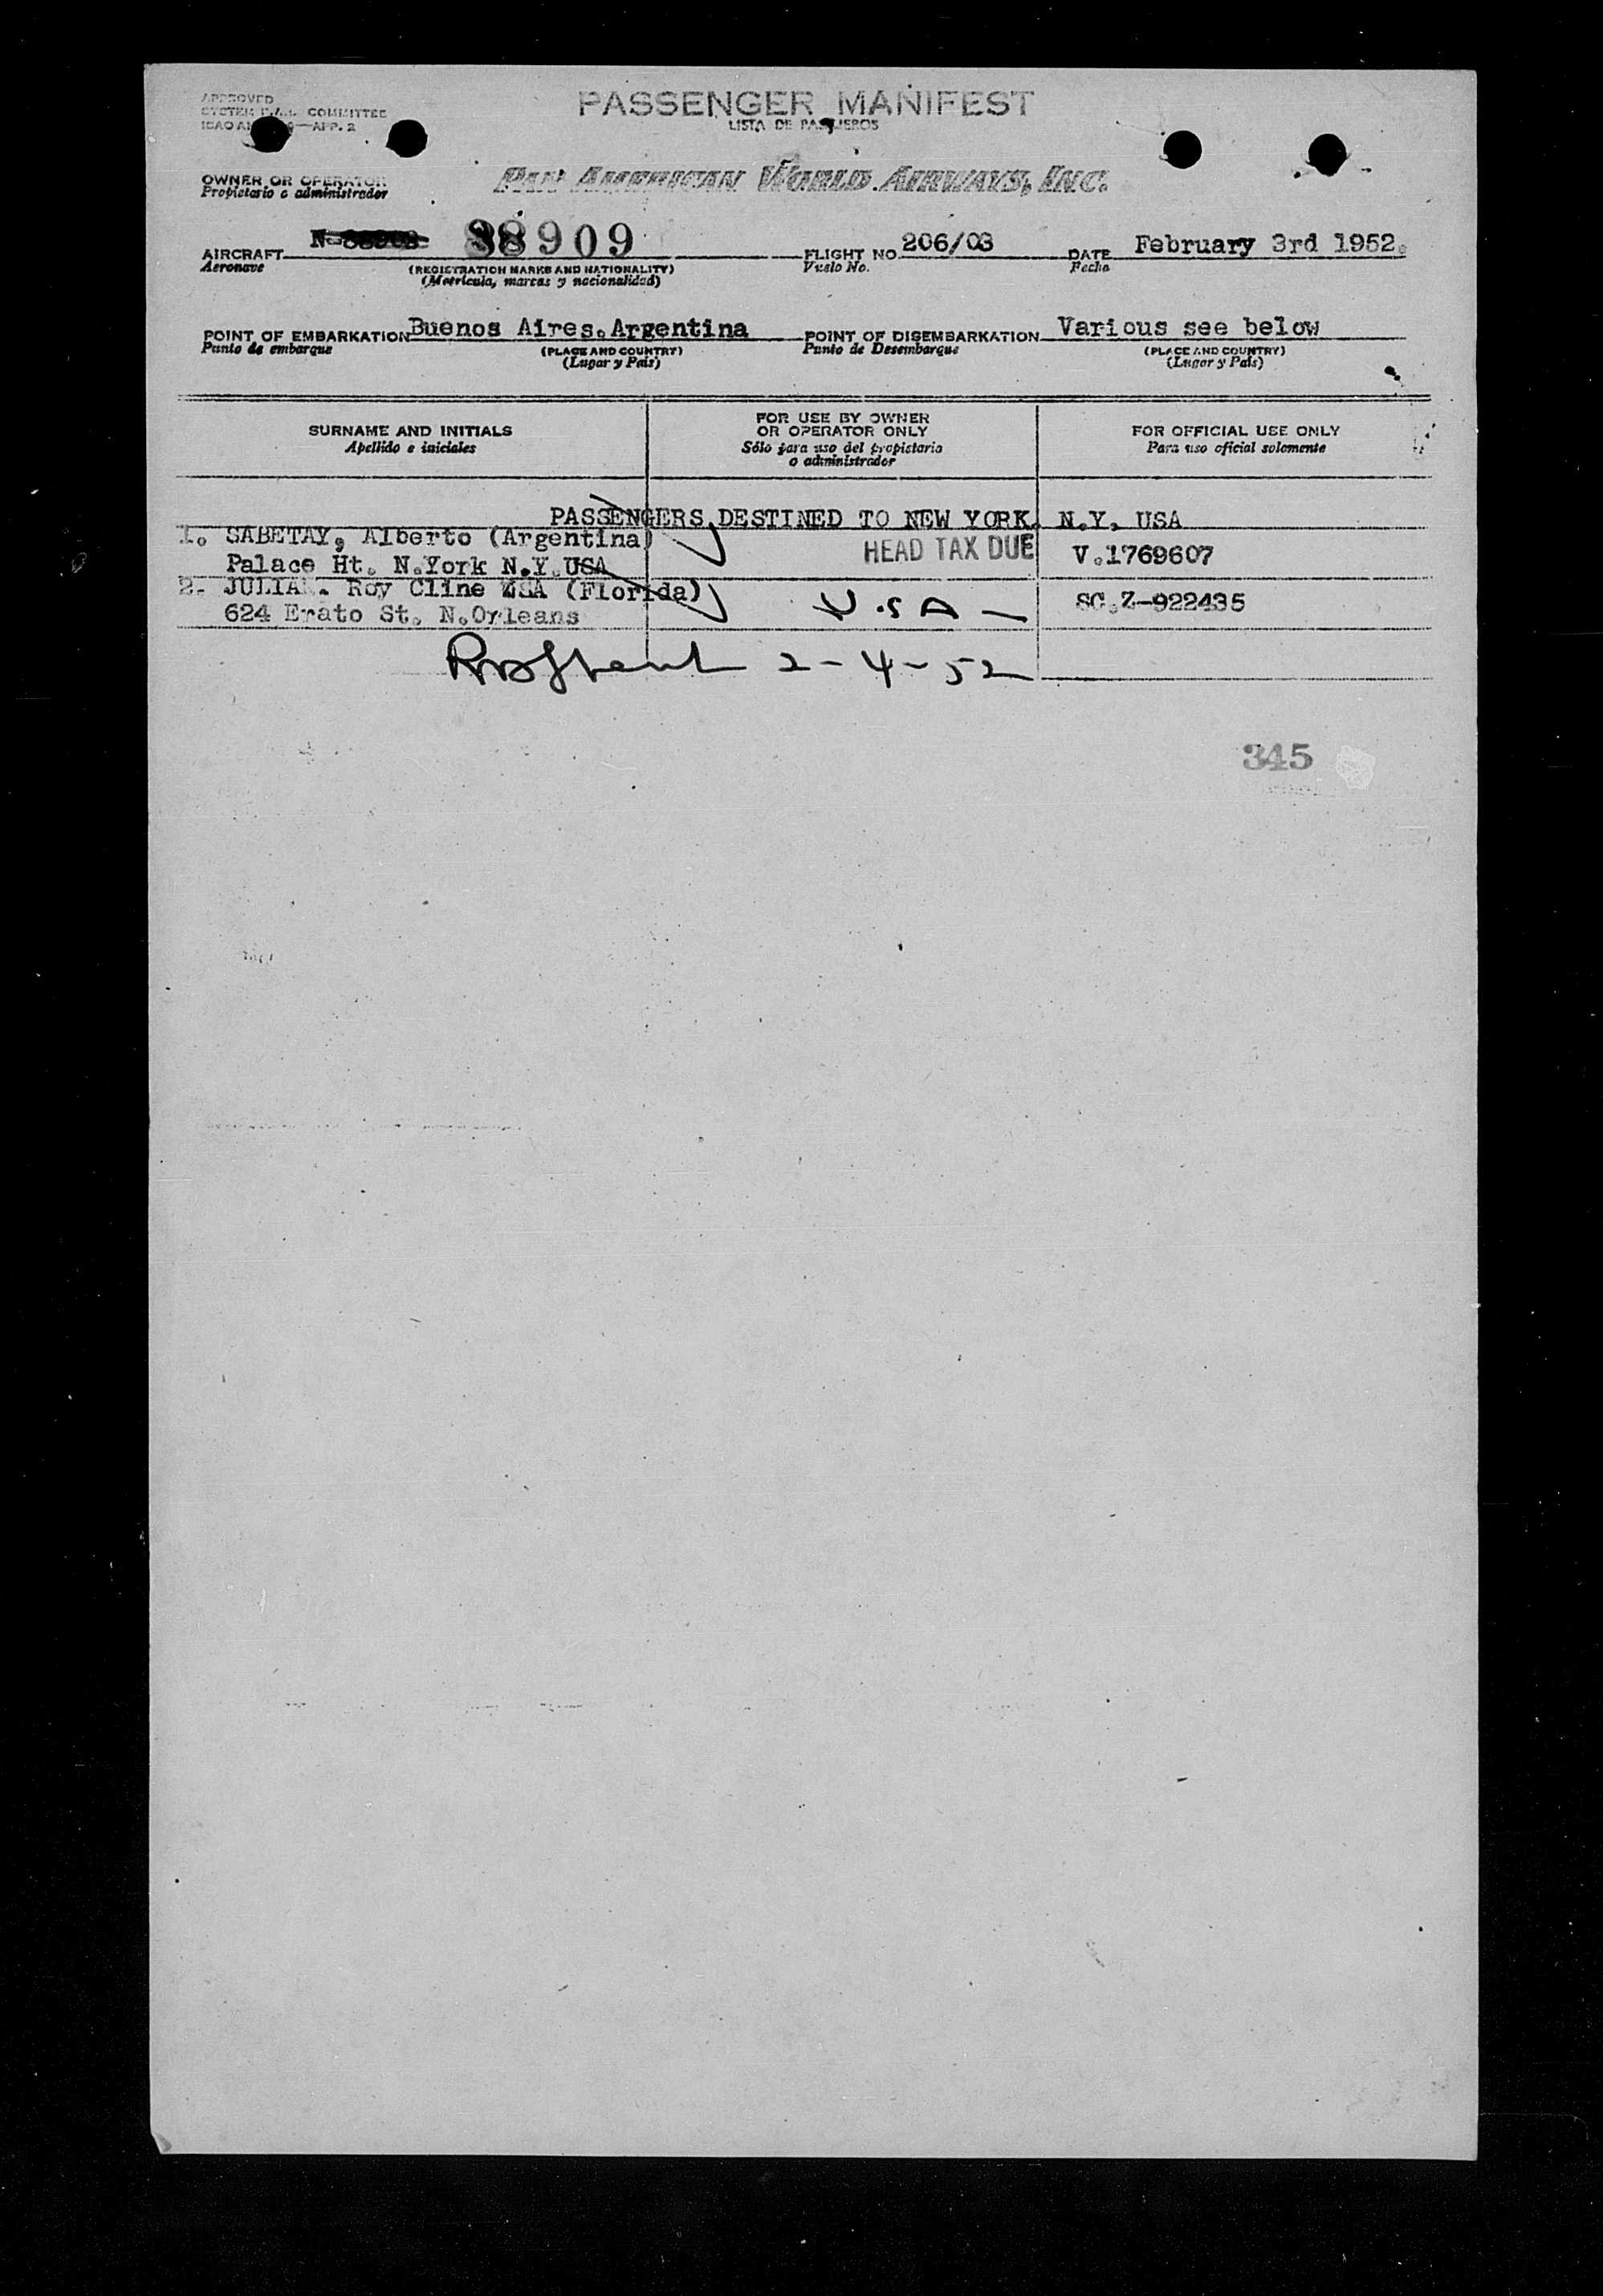 APPROVED
COMMITTEE
APP. 2
PASSENGER MANIFEST
LISTA DE PASAJEROS
OWNER OR OPERATOR
Propietario o administrador
PAN AMERICAN WORLD AIRWAYS, INC.
AIRCRAFT 88909
Aeronave
(REGISTRATION MARKS AND NATIONALITY)
(Matrícula, marcas y nacionalidad)
FLIGHT NO. 206/03
Vuelo No.
DATE February 3rd 1952.
Fecha
POINT OF EMBARKATION Buenos Aires.Argentina
Punto de embarque
(PLACE AND COUNTRY)
(Lugar y País)
POINT OF DISEMBARKATION Various see below
Punto de Desembarque
(PLACE AND COUNTRY)
(Lugar y País)
SURNAME AND INITIALS
Apellido e iniciales
FOR USE BY OWNER
OR OPERATOR ONLY
Sólo para uso del propietario
o administrador
FOR OFFICIAL USE ONLY
Para uso oficial solamente
PASSENGERS DESTINED TO NEW YORK. N.Y. USA
1. SABETAY, Alberto (Argentina)
HEAD TAX DUE
V.1769607
Palace Ht. N.York N.Y.USA
2. JULIAN. Roy Cline USA (Florida)
U.S A —
SC.Z-922435
624 Erato St. N.Orleans
2-4-52
345